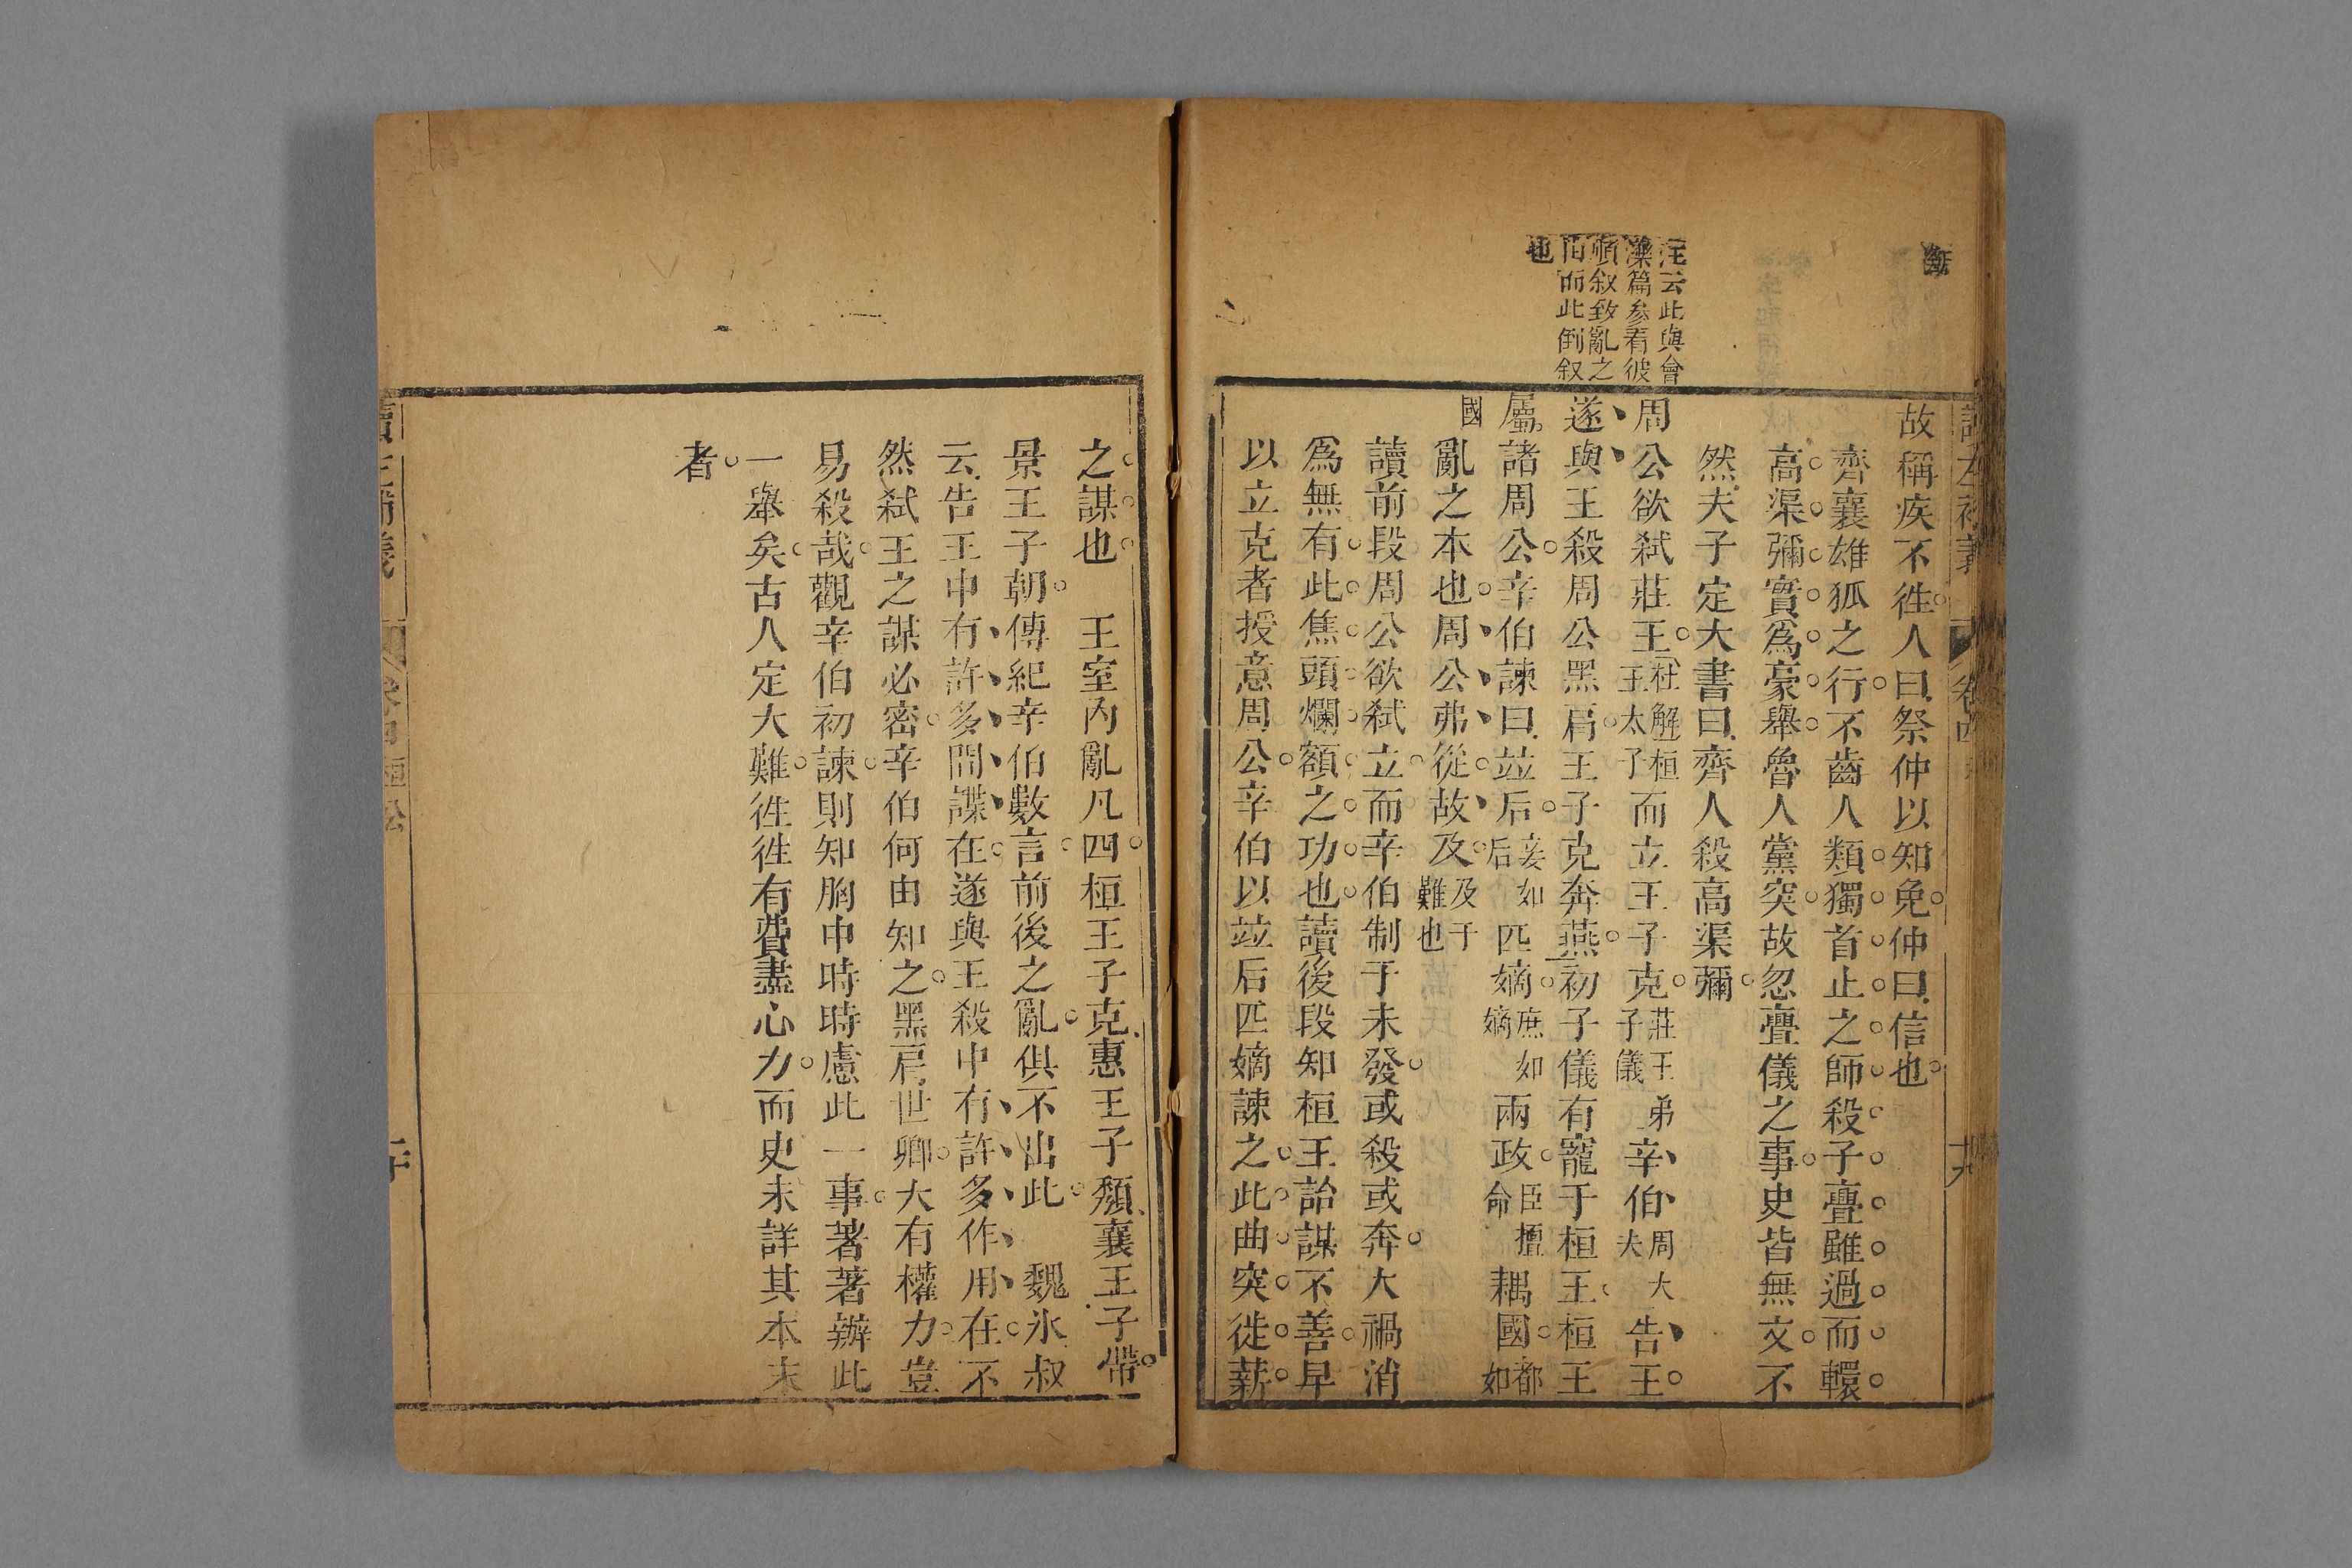 讀左補義
卷四
十九
汪云此與會
濼篇參看彼
順敘致亂之
由而此倒敘
也
故稱疾不徃人曰祭仲以知免仲曰信也
齊襄雄狐之行不齒人類獨首止之師殺子亹雖過而轘
高渠彌實爲豪舉魯人黨突故忽亹儀之事史皆無文不
然夫子定大書曰齊人殺高渠彌
周公欲弑莊王杜解桓王太子而立王子克莊王弟子儀辛伯周大夫告王
遂與王殺周公黑肩王子克奔燕初子儀有寵于桓王桓王
屬諸周公辛伯諫曰竝后妾如后匹嫡庶如嫡兩政臣擅命耦國都如
國亂之本也周公弗從故及及于難也
讀前段周公欲弑立而辛伯制于未發或殺或奔大禍消
爲無有此焦頭爛額之功也讀後段知桓王詒謀不善早
以立克者授意周公辛伯以竝后匹嫡諫之此曲突徙薪
之謀也　王室內亂凡四桓王子克惠王子頹襄王子帶
景王子朝傳紀辛伯數言前後之亂俱不出此　魏氷叔
云告王中有許多間諜在遂與王殺中有許多作用在不
然弑王之謀必密辛伯何由知之黑肩世卿大有權力豈
易殺哉觀辛伯初諫則知胸中時時慮此一事著著辦此
一舉矣古人定大難徃徃有費盡心力而史未詳其本末
者
讀左補義
卷四 桓公
二十